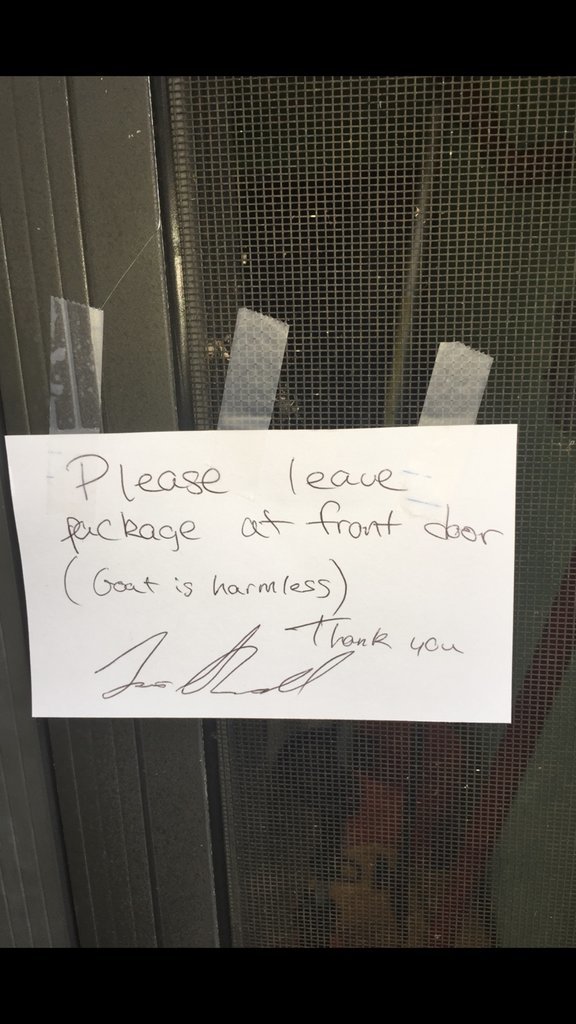 Please leave
package at front door
(Goat is harmless)
Thank you